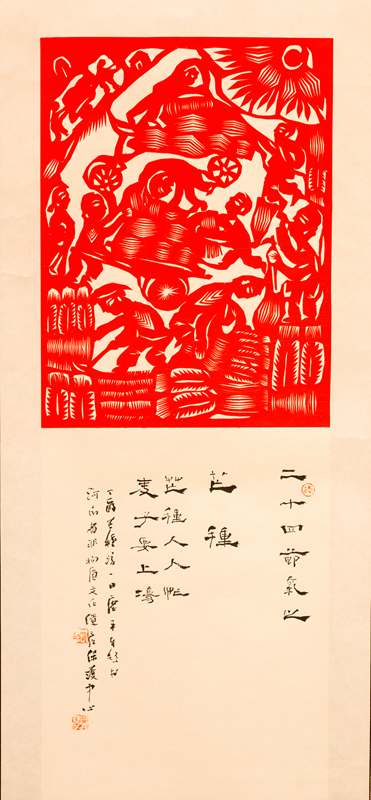 二十四節氣之
芒種
芒種人人忙
麦子要上場
丁酉芒種後一日
河南省非物质文化遗产保護中心